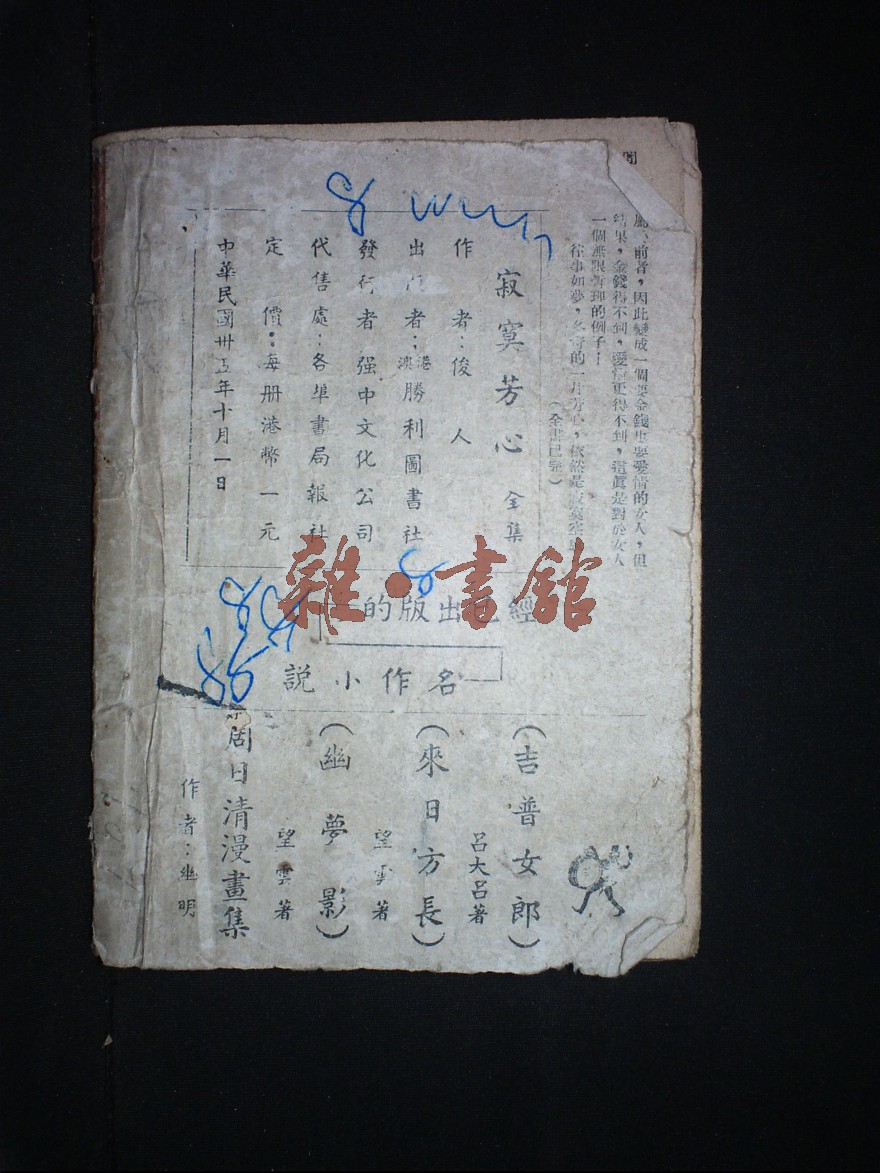 前者，因此變成一個要金錢也要愛情的女人，但
結果，金錢得不到，愛情更得不到，這眞是對於女人
一個無限的例子！
往事如夢，的一片芳心，依然是寂寞
（全書已完）
寂寞芳心 全集
作者：俊人
出者：港澳勝利圖書社
發行者 强中文化公司
代售處：各埠書局報社
定價：每册港幣一元
中華民國卅五年十月一日
經已出版的
名作小說
（吉普女郎）
呂大呂著
（來日方長）
望雲著
（幽夢影）
望雲著
周日清漫畫集
作者：幽明
雜·書館